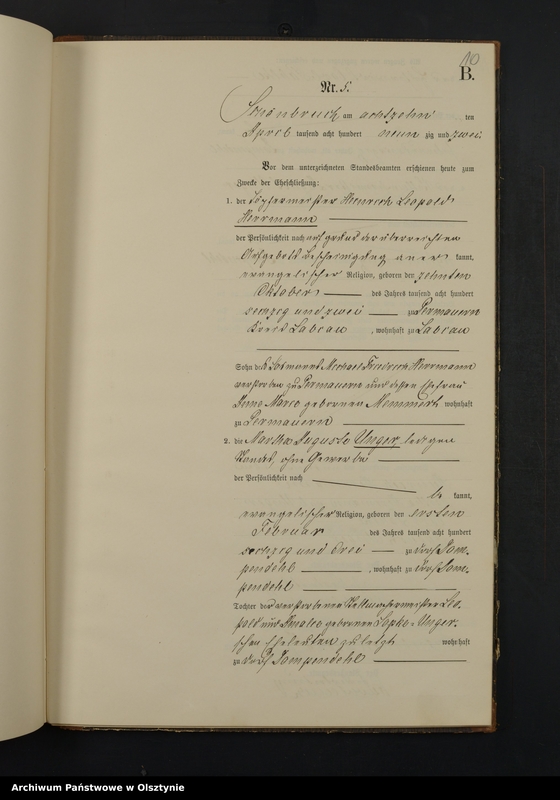 10
B.
Nr. 5.
Schönbruch am achtzehn ten
April tausend acht hundert neun zig und zwei.
Vor dem unterzeichneten Standesbeamten erschienen heute zum
Zwecke der Eheschließung:
1. der Töpfermeister Heinrich Leopold
Herrmann
der Persönlichkeit nach auf Grund der überreichten
Aufgebots Bescheinigung aner kannt,
evangelischer Religion, geboren den zehnten
Oktober des Jahres tausend acht hundert
sechzig und zwei zu Permauern
Kreis Labiau, wohnhaft zu Labiau
Sohn des Losmanns Michael Friedrich Herrmann
verstorben zu Permauern und dessen Ehefrau
geborenen wohnhaft
zu Permauern
2. die Martha Auguste Unger, ledigen
Standes, ohne Gewerbe
der Persönlichkeit nach
be kannt,
evangelischer Religion, geboren den ersten
Februar des Jahres tausend acht hundert
sechzig und drei zu Dorf
, wohnhaft zu Dorf
Tochter der verstorbenen Stellmachermeister Leo-
pold und Amalie geborenen Unger-
schen Eheleuten zuletzt wohnhaft
zu Dorf
Archiwum Państwowe w Olsztynie